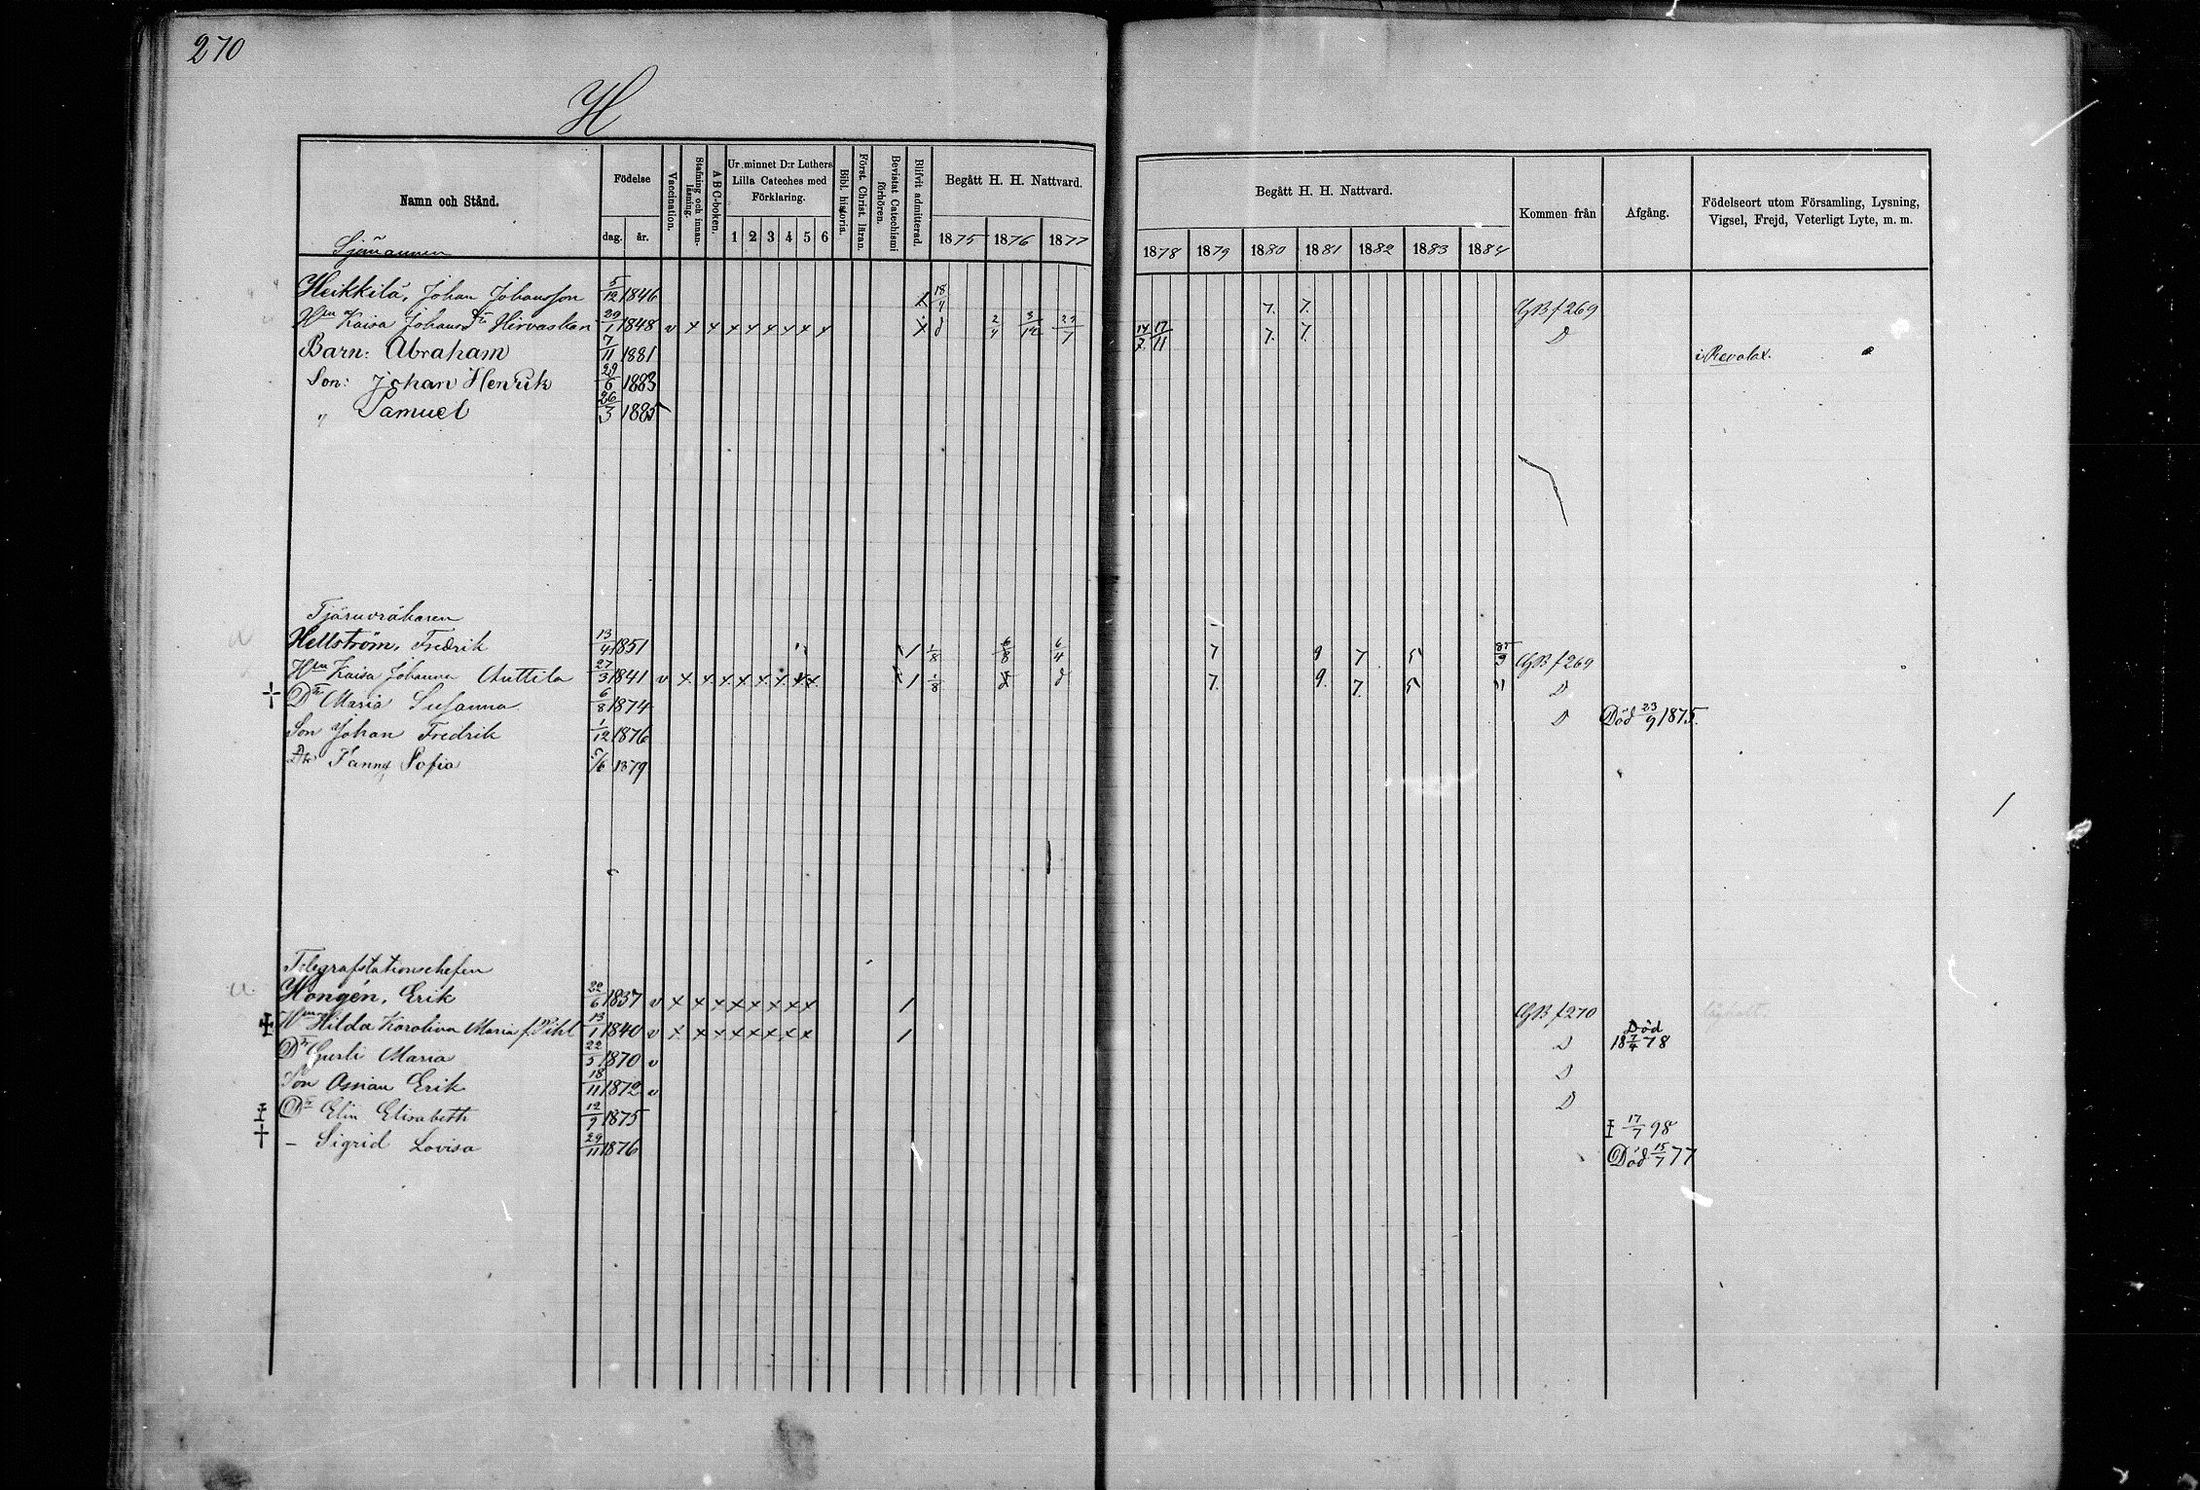 270
H
Namn och Stånd. Födelse Vaccination. Stafning och innanläsning. ABC-boken. Ur minnet D:r Luthers Lilla Cateches med Förklaring. Bibl. historia. Först. Christ. läran. Bevistat Catechismi förhören. Blifvit admitterad. Begått H. H. Nattvard. Begått H. H. Nattvard. Kommen från Afgång. Födelseort utom Församling, Lysning, Vigsel, Frejd, Veterligt Lyte, m. m.
dag. år. 1 2 3 4 5 6 1875 1876 1877 1878 1879 1880 1881 1882 1883 1884
Sjömannen
Heikkilä, Johan Johansson 5/12 1846 x 18/4 7. 7. GB f 269
Hu Kaisa Johans Dr Hirvaskan 29/1 1848 v x x x x x x x x x d 2/4 3/12 29/7 14/7 17/11 7. 7. D
Barn: Abraham 7/11 1881 i Revolax.
Son: Johan Henrik 28/6 1883
" Samuel 26/3 1885
Tjäruvräkaren
Hellström, Fredrik 13/4 1851 1 1/8 6/8 6/4 7 9 7 5 GB f 269
Hu Kaisa Johanna Anttila 27/3 1841 v x x x x x x x x 1 1/8 d d 7. 9. 7. 5 D
† Dr Maria Susanna 6/8 1874 D Död 23/9 1875.
Son Johan Fredrik 1/12 1876
Dr Fanny Sofia 5/6 1879
Telegrafstationschefen
Hongén, Erik 22/6 1837 v x x x x x x x x 1 GB f 270
Hu Hilda Karolina Maria f. Pihl 13/1 1840 v x x x x x x x x 1 D Död 18 7/4 78
Dr Gurli Maria 22/3 1870 v D
Son Ossian Erik 18/11 1872 v D
Dr Elin Elisabeth 12/9 1875 17/7 98
† – Sigrid Lovisa 29/11 1876 Död 15/7 77